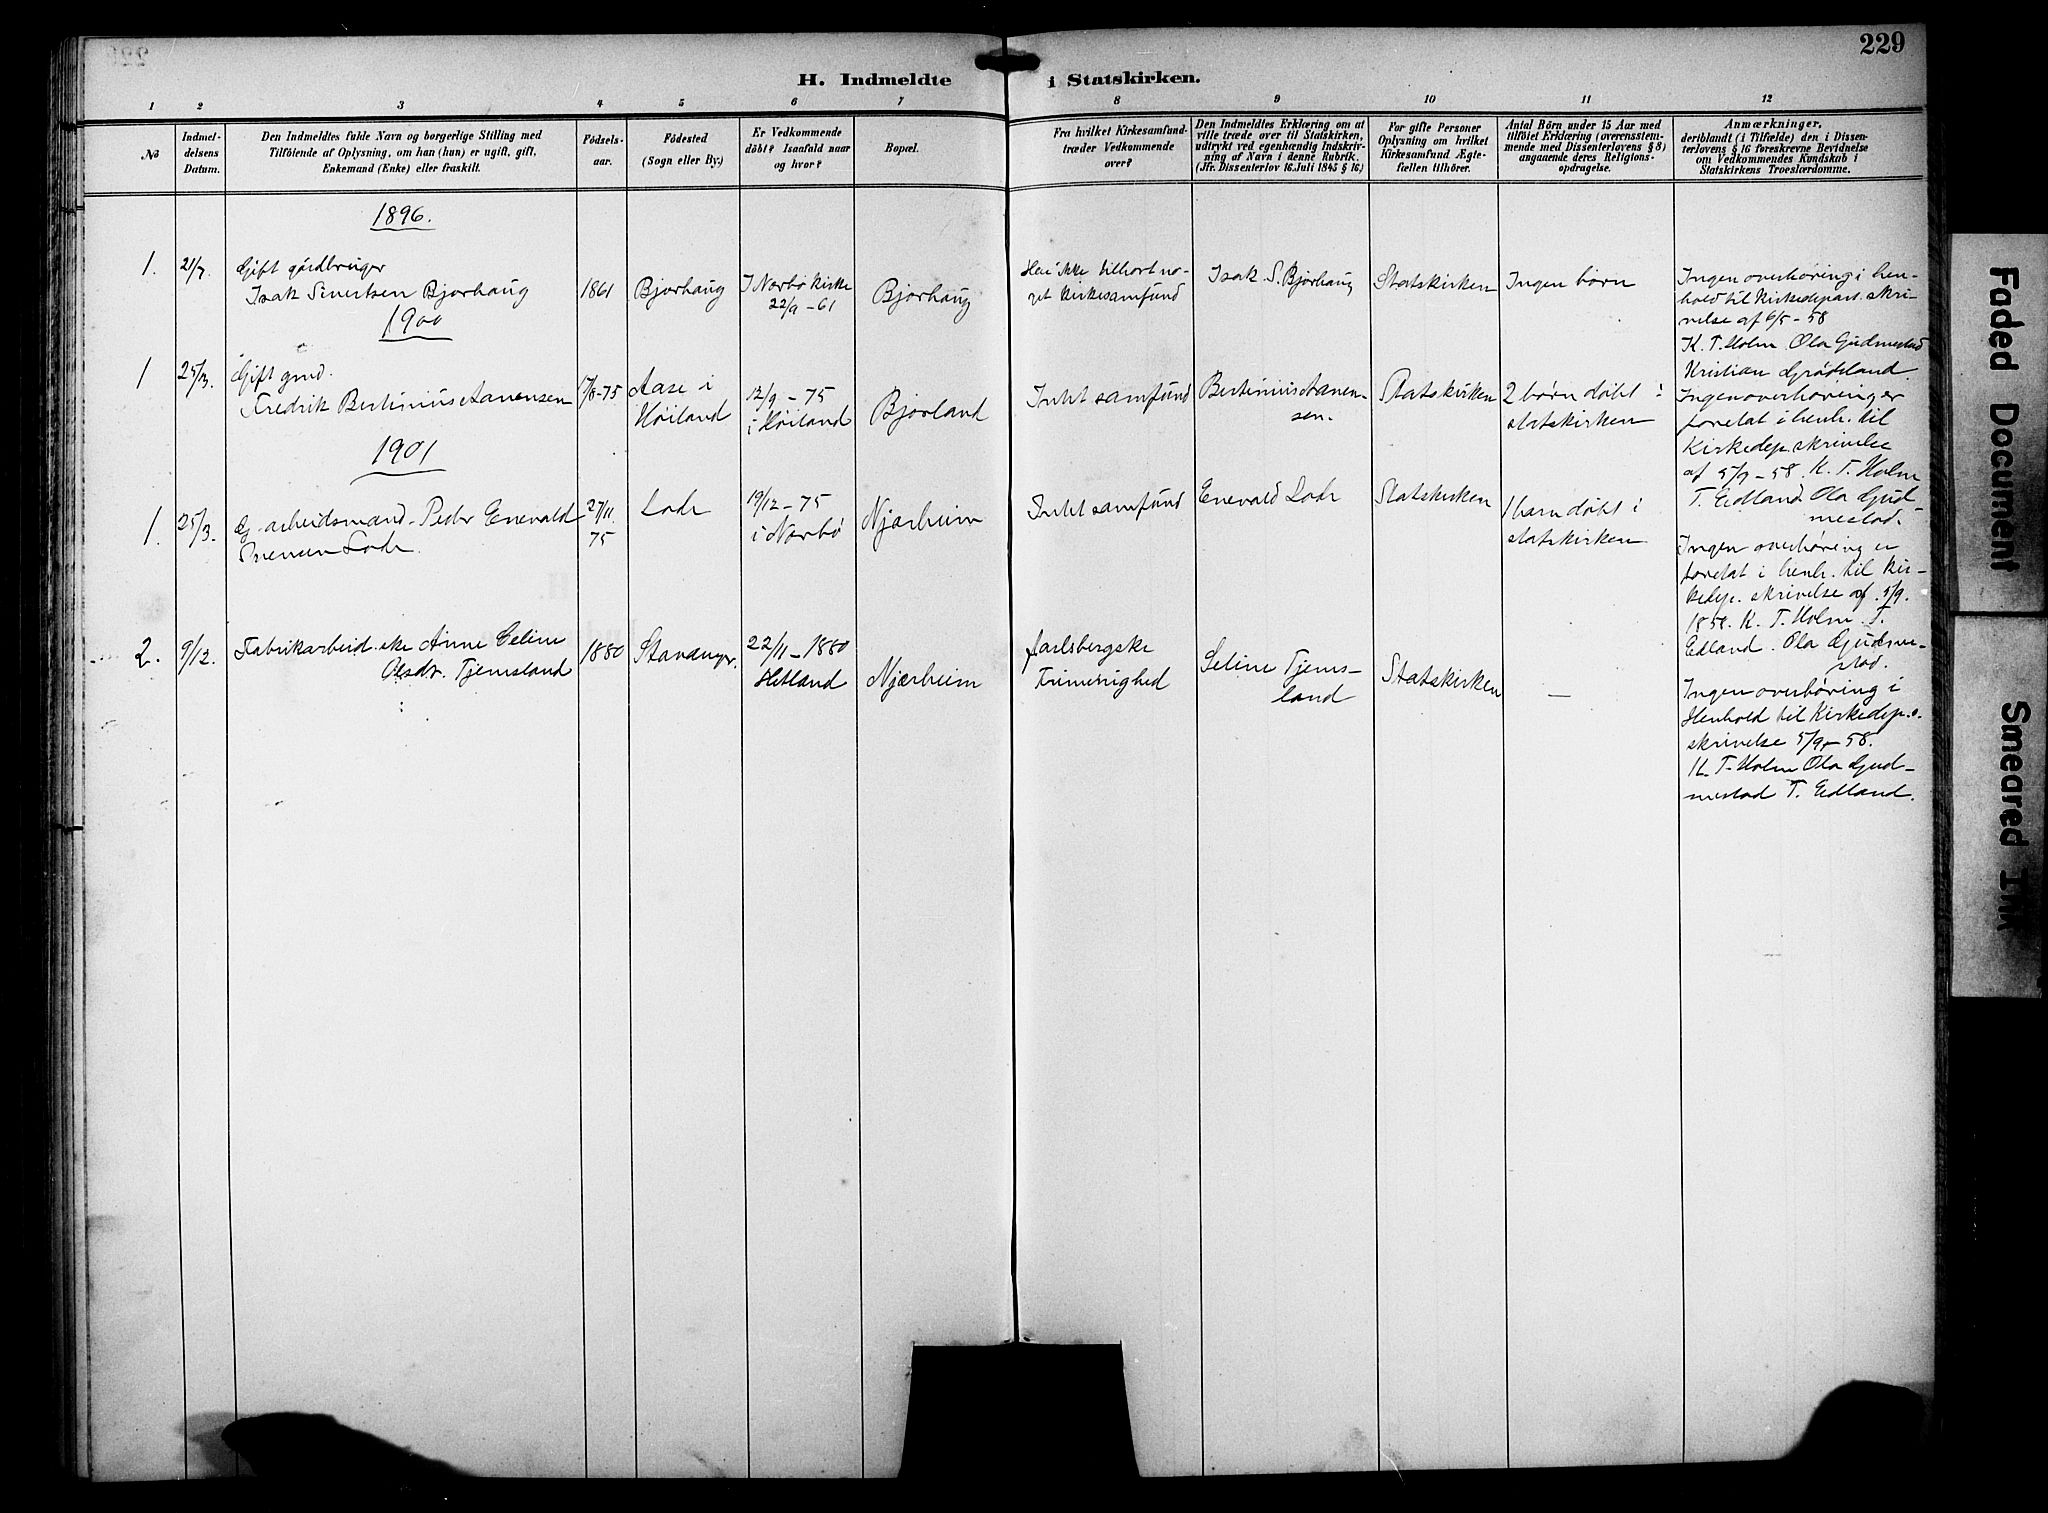 229
H. Indmeldte i Statskirken.
1 2 3 4 5 6 7 8 9 10 11 12
No
Indmel-
delsens
Datum.
Den Indmeldtes fulde Navn og borgerlige Stilling med
Tilföiende af Oplysning, om han (hun) er ugift, gift,
Enkemand (Enke) eller fraskilt.
Födsels-
aar.
Födested
(Sogn eller By.)
Er Vedkommende
döbt? Isaafald naar
og hvor?
Bopæl.
Fra hvilket Kirkesamfund
træder Vedkommende
over?
Den Indmeldtes Erklæring om at
ville træde over til Statskirken,
udtrykt ved egenhændig Indskriv-
ning af Navn i denne Rubrik.
(Jfr. Dissenterlov 16 Juli 1845 § 16.)
For gifte Personer
Oplysning om hvilket
Kirkesamfund Ægte-
fællen tilhörer.
Antal Börn under 15 Aar med
tilföiet Erklæring (overensstem-
mende med Dissenterlovens § 8)
angaaende deres Religions-
opdragelse.
Anmærkninger,
deriblandt (i Tilfælde) den i Dissen-
terlovens § 16 foreskrevne Bevidnelse
om Vedkommendes Kundskab i
Statskirkens Troeslærdomme.
1896.
1.
21/7.
Gift gårdbruger
Isak Sivertsen Bjorhaug
1861
Bjorhaug
I Norbø kirke
22/9 - 61
Bjorhaug
Har ikke tilhørt no-
get kirkesamfund
Isak S. Bjorhaug
Statskirken
Ingen børn
Ingen overhøring i hen-
hold til Kirkedepart. skri-
velse af 6/5 - 58
K. T. Holm Ola Gudmestad
Kristian Grødeland
1900
1
25/3.
Gift gmd.
Fredrik Bertinius Aanensen
17/8-75
Aase i
Høiland
12/9 - 75
i Høiland
Bjorland
Intet samfund
Bertinius Aanen-
sen.
Statskirken
2 børn døbt i
statskirken
Ingen overhøring er
foretat i henh. til
Kirkedep. skrivelse
af 5/9 - 58. K. T. Holm
T. Edland. Ola Gud-
mestad.
1901
1.
25/3.
G. arbeidsmand Peder Enevald
Lode.
27/11
75
Lode
19/12 - 75
i Norbø
Njærheim
Intet samfund
Enevald Lode
Statskirken
1 barn døbt i
statskirken
Ingen overhøring er
foretat i henh. til Kir-
kedep. skrivelse af 5/9.
1858. K. T. Holm. T.
Edland. Ola Gudme-
stad.
2.
9/12.
Fabrikarbeid.ske Anne Celine
Olsdr. Tjemsland
1880
Stavanger.
22/11 - 1880
Hetland
Njærheim
Jarlsbergske
Frimenighed
Seline Tjems-
land
Statskirken
—
Ingen overhøring i
Henhold til Kirkedep.s.
skrivelse 5/9 - 58.
K. T. Holm Ola Gud-
mestad T. Edland.
Faded Document
Smeared Ink